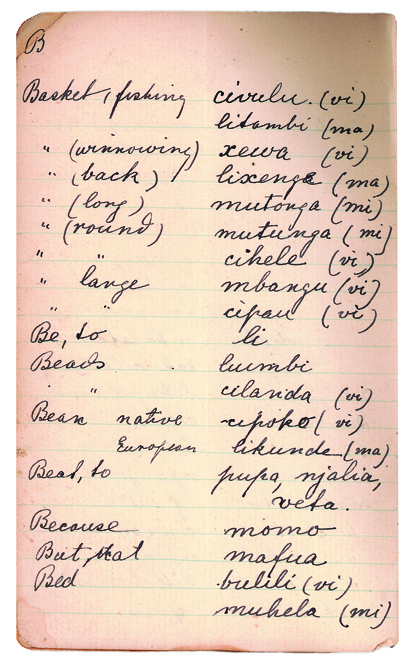 B
Basket, fishing civulu. (vi)
litambi (ma)
" (winnowing) xewa (vi)
" (back) lixenge (ma)
" (long) mutonga (mi)
" (round) mutunga (mi)
" " cihele (vi)
" large mbangu (vi)
" " cipau (vi)
Be, to li
Beads luumbi
" cilanda (vi)
Bean native cipoko (vi)
European likunde (ma)
Beat, to pupa, njalia,
veta.
Because momo
But, that mafua
Bed bulili (vi)
muhela (mi)